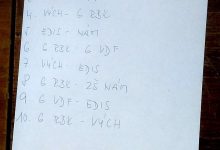 4. VÝCH - G BBK
5. EDIS - NÁM
6. G BBK - G VDF
7. VÝCH - EDIS
8. G BBK - ZŠ NÁM
9. G VDF - EDIS
10. G BBK - VÝCH